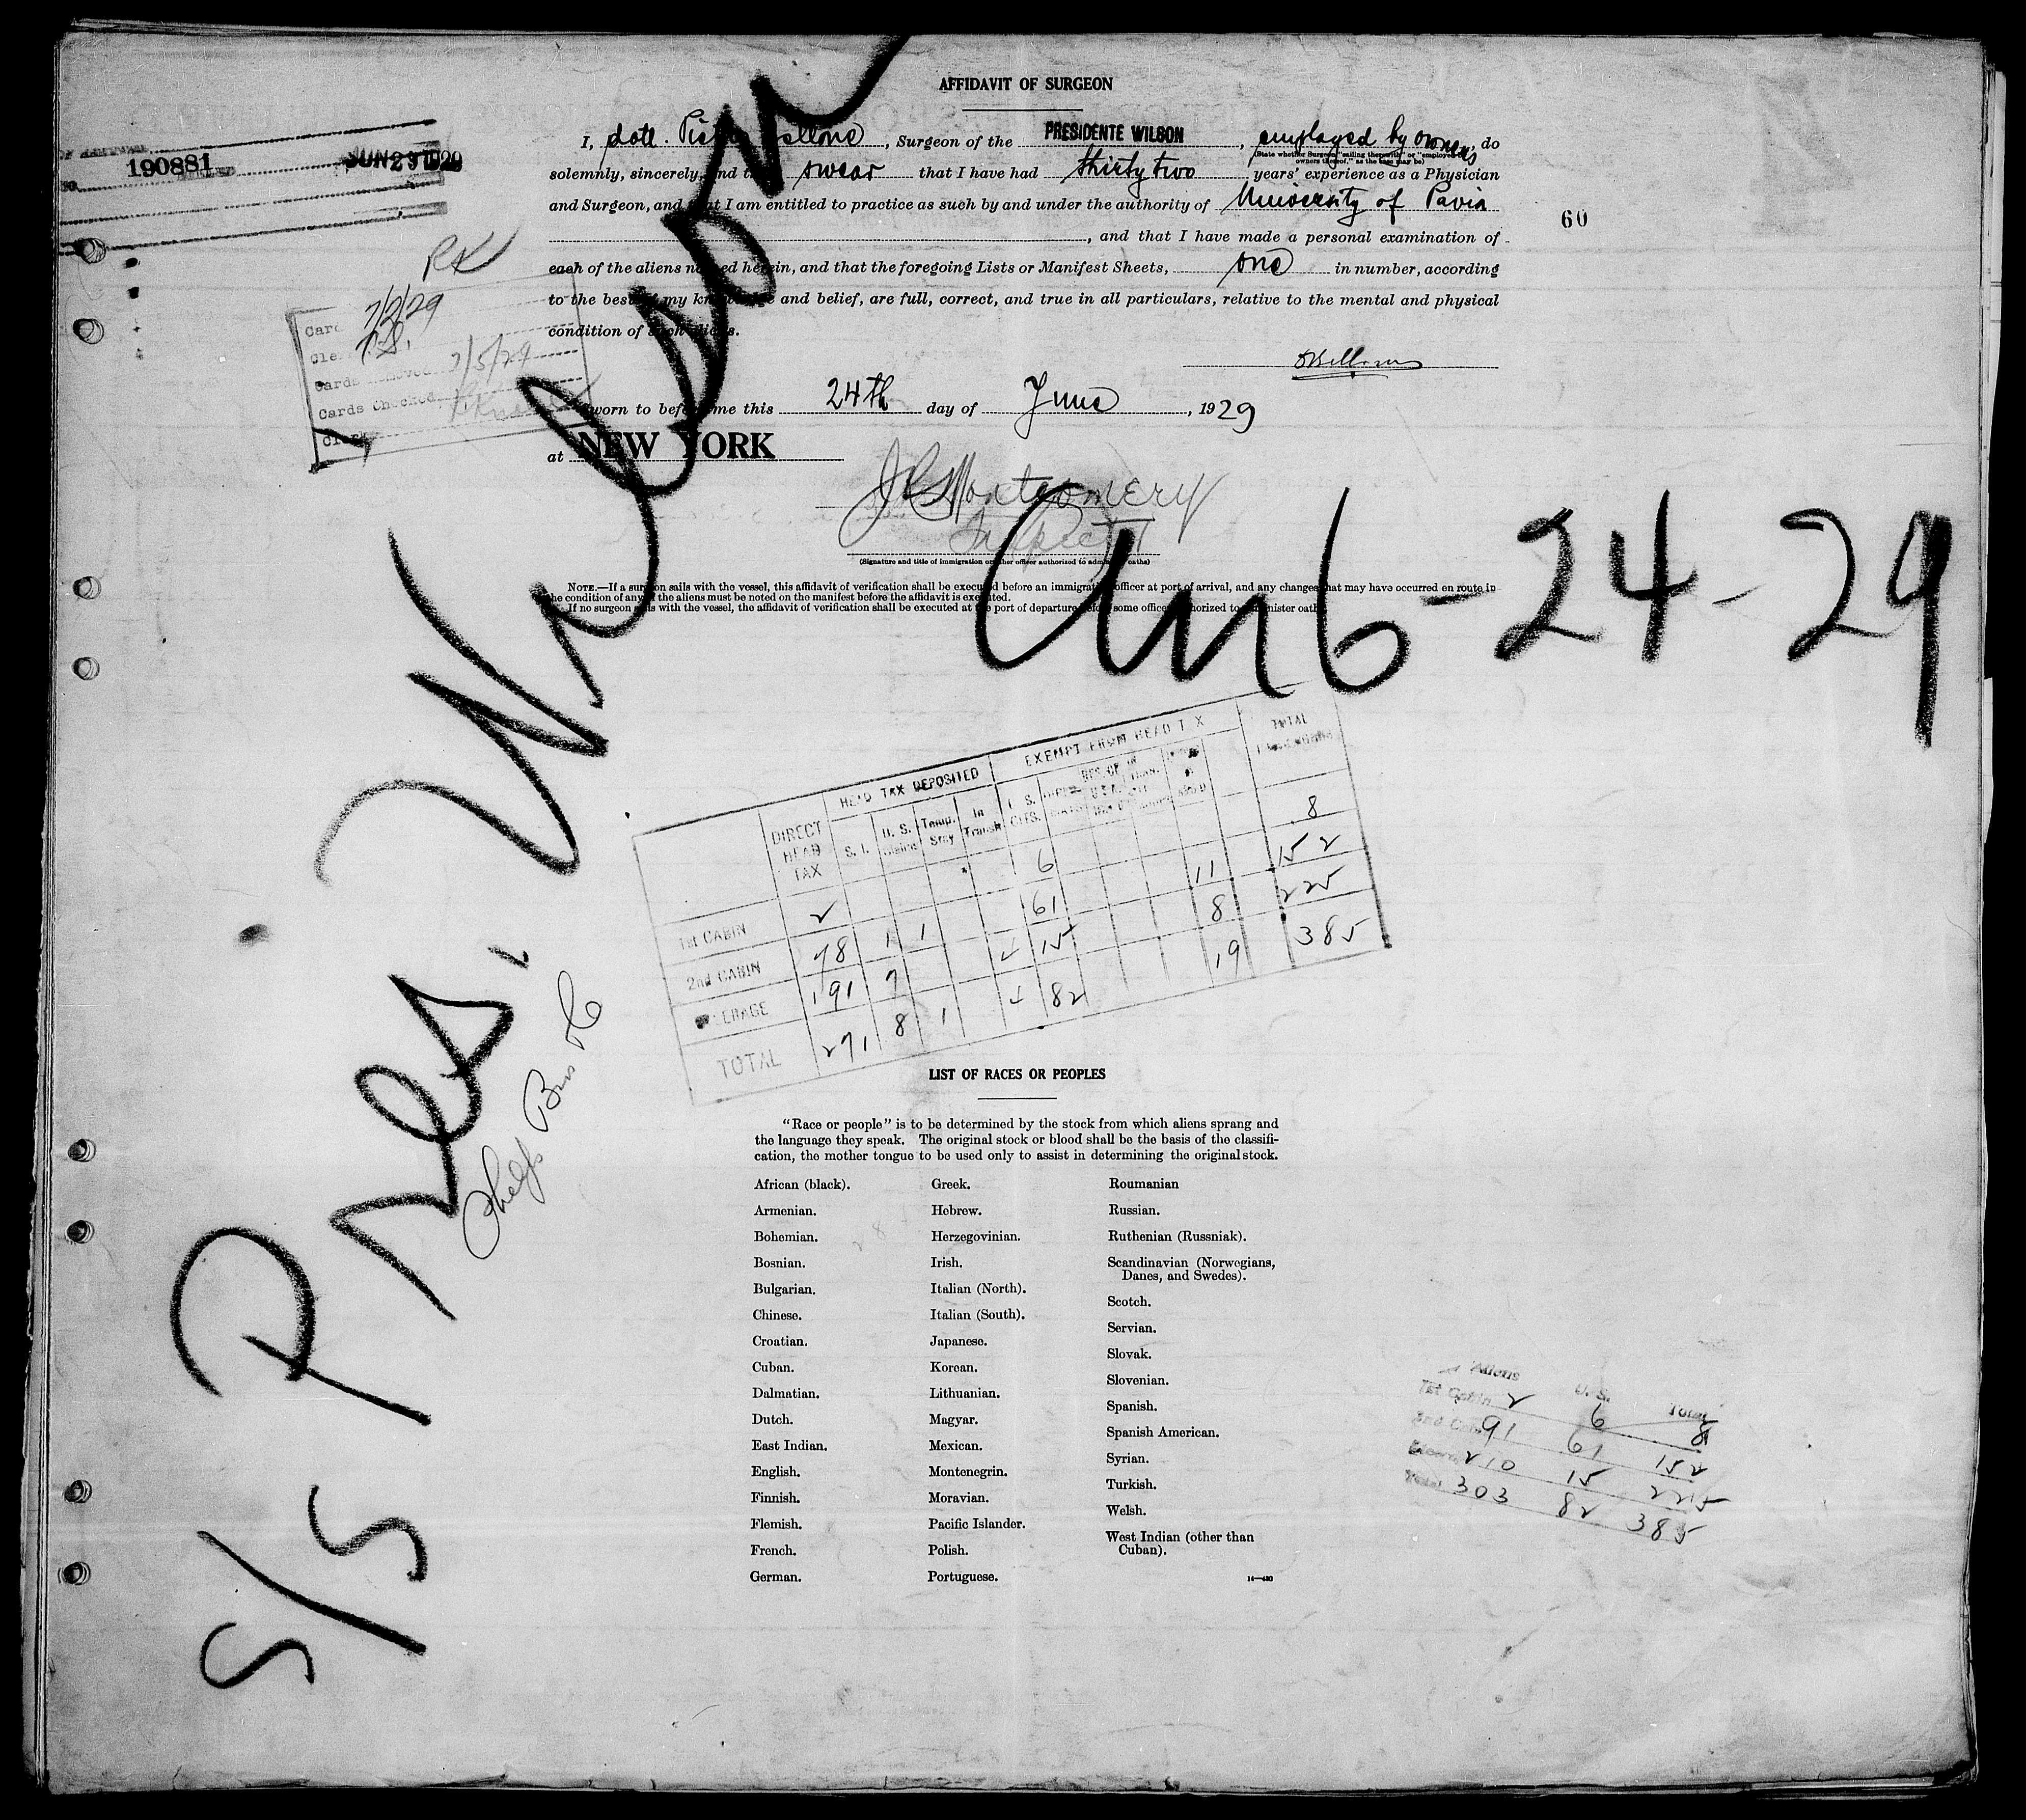 AFFIDAVIT OF SURGEON
I, dott. , Surgeon of the PRESIDENTE WILSON, employed by owners, do
(State whether Surgeon "sailing therewith" or "employed by owners thereof," as the case may be)
solemnly, sincerely, and swear that I have had thirty two years' experience as a Physician
and Surgeon, and that I am entitled to practice as such by and under the authority of University of Pavia
, and that I have made a personal examination of
each of the aliens named herein, and that the foregoing Lists or Manifest Sheets, one in number, according
to the best of my knowledge and belief, are full, correct, and true in all particulars, relative to the mental and physical
condition of such aliens.
Sworn to before me this 24th day of June, 1929
at NEW YORK
J Montgomery
Inspector
(Signature and title of immigration or other officer authorized to administer oaths)
NOTE.—If a surgeon sails with the vessel, this affidavit of verification shall be executed before an immigration officer at port of arrival, and any changes that may have occurred en route in
the condition of any of the aliens must be noted on the manifest before the affidavit is executed.
If no surgeon sails with the vessel, the affidavit of verification shall be executed at the port of departure before some officer authorized to administer oaths.
190881
JUN 29 1929
60
RK
7/2/29
Cards Removed 7/5/29
Cards Checked
Clerk
S/S Pres. Wilson
Arr 6-24-29
Phelps Bros & Co
HEAD TAX DEPOSITED
EXEMPT FROM HEAD TAX
TOTAL
DIRECT HEAD TAX
S. I.
U. S.
Temp. Stay
In Transit
U. S. CITS.
1st CABIN 2 6 8
2nd CABIN 78 1 1 61 11 152
STEERAGE 191 7 15 8 225
TOTAL 271 8 1 82 19 385
LIST OF RACES OR PEOPLES
"Race or people" is to be determined by the stock from which aliens sprang and
the language they speak. The original stock or blood shall be the basis of the classifi-
cation, the mother tongue to be used only to assist in determining the original stock.
African (black).
Armenian.
Bohemian.
Bosnian.
Bulgarian.
Chinese.
Croatian.
Cuban.
Dalmatian.
Dutch.
East Indian.
English.
Finnish.
Flemish.
French.
German.
Greek.
Hebrew.
Herzegovinian.
Irish.
Italian (North).
Italian (South).
Japanese.
Korean.
Lithuanian.
Magyar.
Mexican.
Montenegrin.
Moravian.
Pacific Islander.
Polish.
Portuguese.
Roumanian
Russian.
Ruthenian (Russniak).
Scandinavian (Norwegians,
Danes, and Swedes).
Scotch.
Servian.
Slovak.
Slovenian.
Spanish.
Spanish American.
Syrian.
Turkish.
Welsh.
West Indian (other than
Cuban).
Aliens U. S. Total
1st Cabin 2 6 8
2nd Cabin 91 61 152
210 15 225
Total 303 82 385